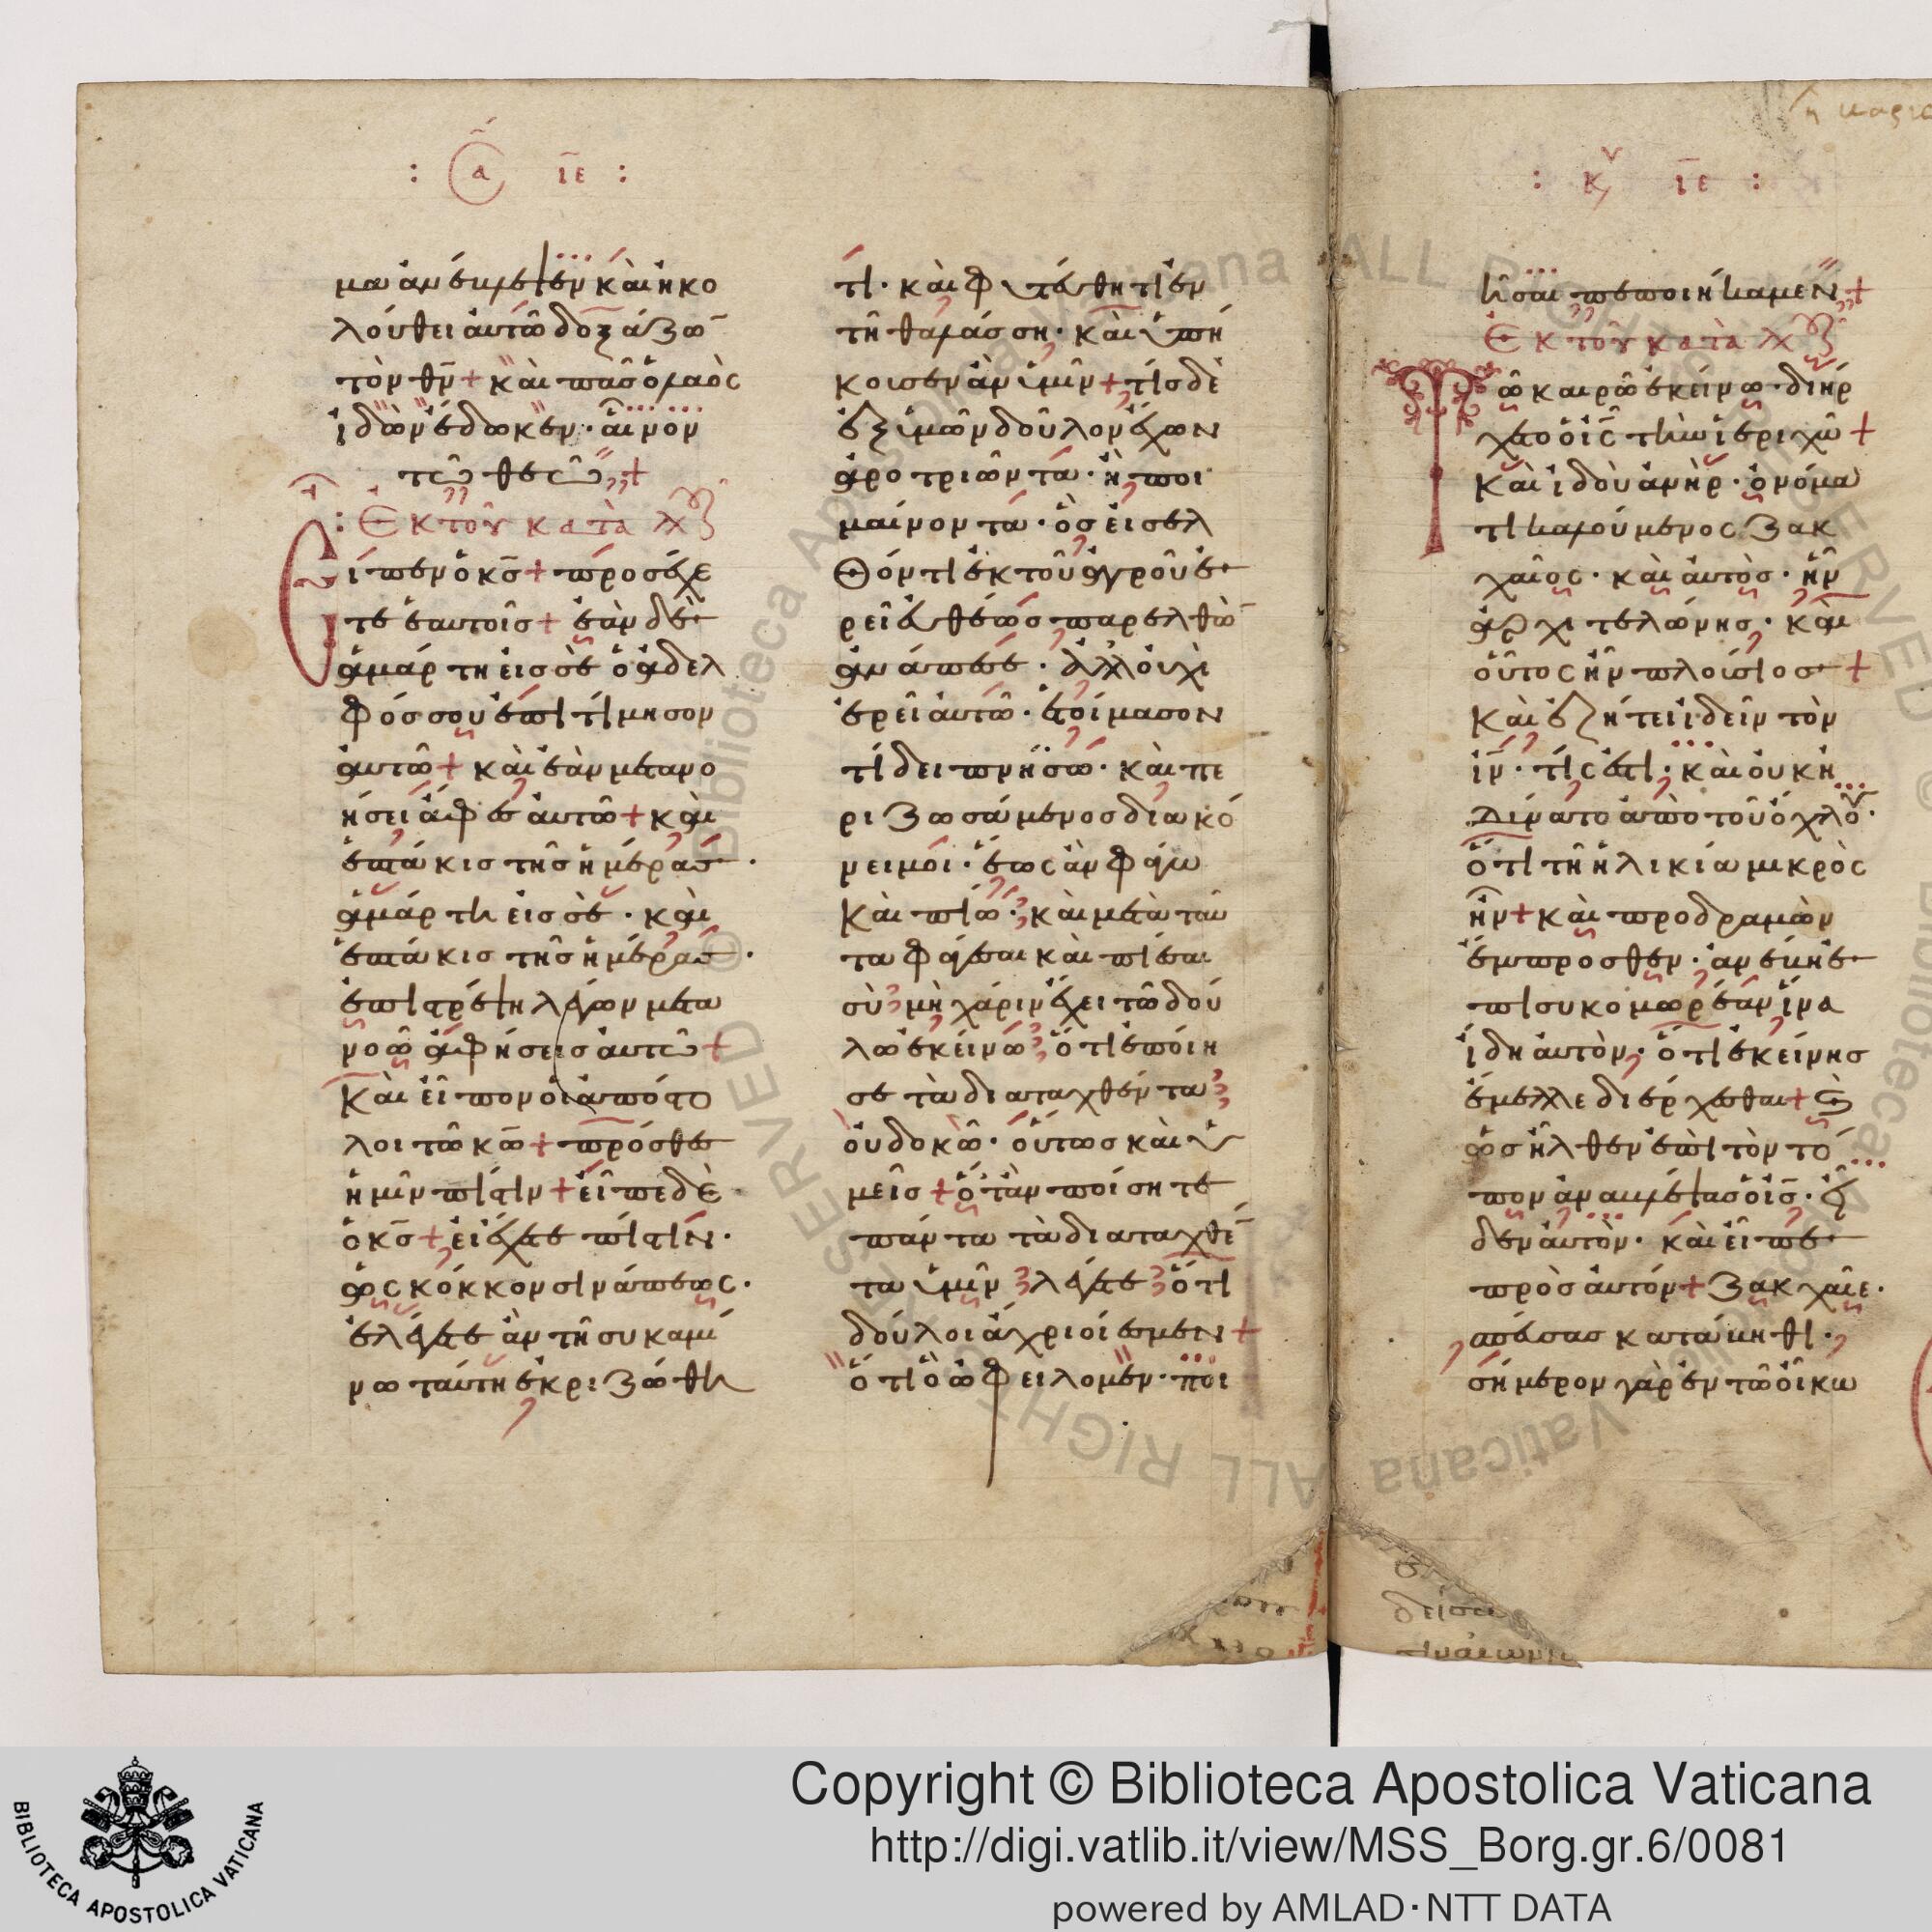 : ᾱ ῑε :
μα ἀνέβλεψεν καὶ ἠκο
λούθει αὐτῶ δοξάζω¯
τὸν θ̅ν̅ + καὶ πᾶσ ὁ λαὸς
ἰδὼν ἔδωκεν · αἶνον
τῶ θεῶ +
: Ἐκ τοῦ κατὰ λ
Εἶπεν ὁ κ̅σ̅ + προσέχε
τε ἑαυτοῖσ + ἐὰν δὲ
ἁμάρτη εἰσ σὲ ὁ ἀδελ
φόσ σου ἐπιτίμησον
αὐτῶ + καὶ ἐὰν μετανο
ήσει ἄφες αὐτῶ + καὶ
ἑπτάκισ τῆσ ἡμέρασ ·
ἁμάρτη εἰσ σὲ · καὶ
ἑπτάκισ τῆσ ἡμέρασ ·
ἐπιστρέψη λέγων μετα
νοῶ ἀφήσεισ αὐτῶ +
Καὶ εἶπον οἱ ἀπόστο
λοι τῶ κ̅ω̅ + πρόσθεσ
ἡμῖν πίστιν + εἶπε δὲ
ὁ κ̅σ̅ + εἰ ἔχετε πίστιν ·
ὡς κόκκον σινάπεως ·
ἐλέγετε ἂν τῆ συκαμί
νω ταύτη ἐκριζώθη
τι · καὶ φυτεύθητι ἐν
τῆ θαλάσση · καὶ ὑπή
κουσεν ἂν ὑμῖν + τίσ δὲ
ἐξ ὑμῶν δοῦλον ἔχων
ἀροτριῶντα · ἢ ποι
μαίνοντα · ὃσ εἰσελ
θόντι ἐκ τοῦ ἀγροῦ ἐ
ρεῖ εὐθέωσ παρελθὼ¯
ἀνάπεσε · ἀλλ οὐχὶ
ἐρεῖ αὐτῶ · ἑτοίμασον
τί δειπνήσω · καὶ πε
ριζωσάμενοσ διακό
νει μοι · ἕως ἂν φάγω
καὶ πίω · καὶ μετὰ ταῦ
τα φάγεσαι καὶ πίεσαι
σὺ μὴ χάριν ἔχει τῶ δού
λω ἐκείνω ὅτι ἐποίη
σε τὰ διαταχθέντα
οὐ δοκῶ · οὕτωσ καὶ ὑ
μεῖσ + ὅταν ποίσητε
πάντα τὰ διαταχθέ¯
τα ὑμῖν λέγετε ὅτι
δούλοι ἀχριοί ἐσμεν +
ὅτι ὃ ὠφείλομεν · ποι
: κυ ῑε :
ῆσαι πεποιήκαμεν +
Ἐκ τοῦ κατὰ λ
Τῶ καιρῶ ἐκείνω · διήρ
χετο ὁ ι̅ς̅ τὴν ἱεριχὼ +
Καὶ ἰδοὺ ἀνὴρ · ὀνόμα
τι καλούμενος ζακ
χαῖος · καὶ αὐτὸσ · ἦν
ἀρχιτελώνησ · καὶ
οὗτος ἦν πλούσιοσ +
Καὶ ἐζήτει ἰδεῖν τὸν
ι̅ν̅ · τίς ἐστι · καὶ οὐκ ἠ
δύνατο ἀπὸ τοῦ ὄχλου ·
ὅτι τῆ ἡλικία μικρὸς
ἦν + καὶ προδραμὼν
ἔμπροσθεν · ἀνέβη ἐ
πὶ συκομωρέαν ἵνα
ἴδη αὐτὸν · ὅτι ἐκείνησ
ἔμελλε διέρχεσθαι + καὶ
ὡσ ἦλθεν ἐπὶ τὸν τό
πον ἀναβλέψασ ὁ ι̅σ̅ · εἶ
δεν αὐτὸν · καὶ εἶπε
πρὸσ αὐτόν + ζακχαῖε ·
σπεύσασ κατάβηθι ·
σήμερον γὰρ ἐν τῶ οἴκω
Copyright © Biblioteca Apostolica Vaticana
http://digi.vatlib.it/view/MSS_Borg.gr.6/0081
powered by AMLAD·NTT DATA
BIBLIOTECA APOSTOLICA VATICANA